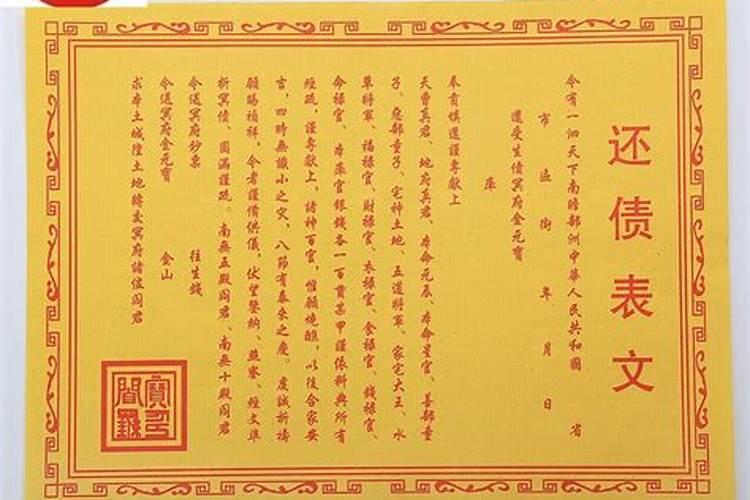 还债表文
今有一泗天下南瞻部洲中華人民共和國 省
市 區 街 年 月 日
還受生債冥府金元寶
庫
奉肓填還謹專獻上
天曹真君、地府真君、本命元辰、本命星官、善部童
子、惡部童子、宅神土地、五道將軍、家宅大王、水
草將軍、福禄官、財禄官、衣禄官、食禄官、錢禄官、
命禄官、本庫官銀錢各一百貫某甲謹依科典所有
經疏，謹專獻上，諸神百官，惟願燒醮，以後合家安
吉，四時無識小之災，八節有泰來之慶。虔誠祈禱
願賜禎祥，令者謹備供儀，伏望鑒納、燕寥、經文準
析冥債、圓滿謹疏。南無五殿阎君、南無十殿阎君
令送冥府鈔票 往生錢
令送冥府金元寶 金山
求本土城隍土地轉交冥府諸位阎君